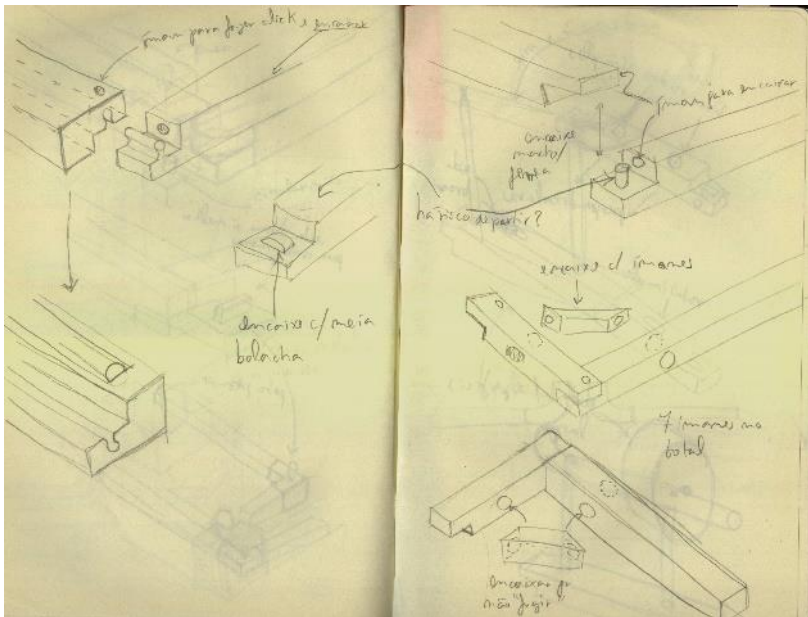 íman para fazer click e encaixar
encaixe c/ meia
bolacha
íman para encaixar
encaixe
macho/
fêmea
há risco de partir?
encaixe c/ ímanes
7 ímanes no
total
encaixar p/
não "fugir"